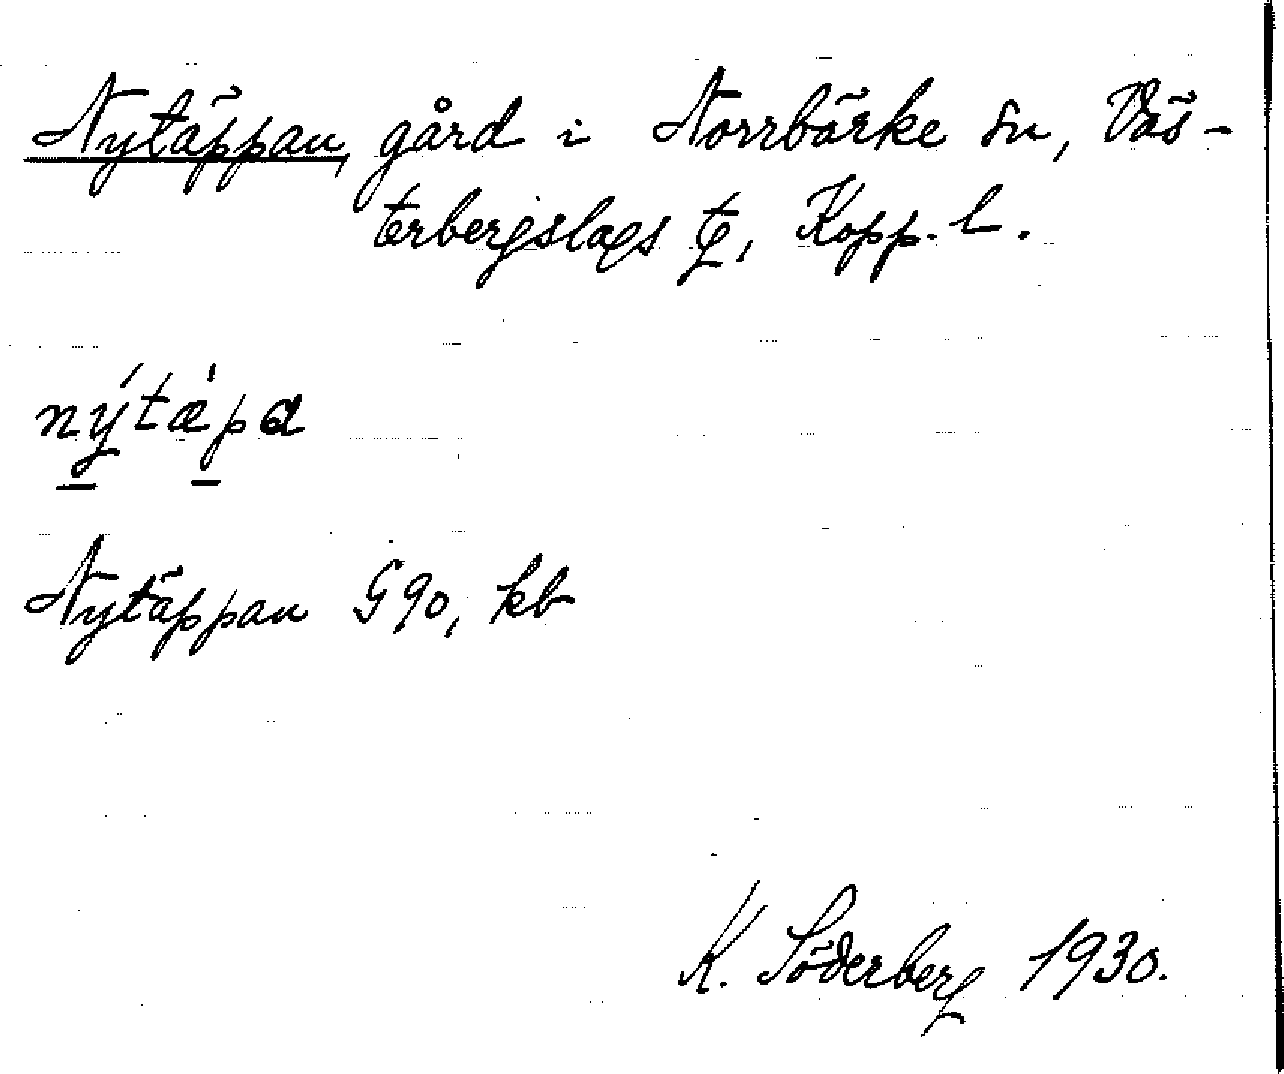 Nytäppan, gård i Norrbärke sn, Väs-
terbergslags tg, Kopp. l.
nýtæ̀pa
Nytäppan G90, kb
K. Söderberg 1930.